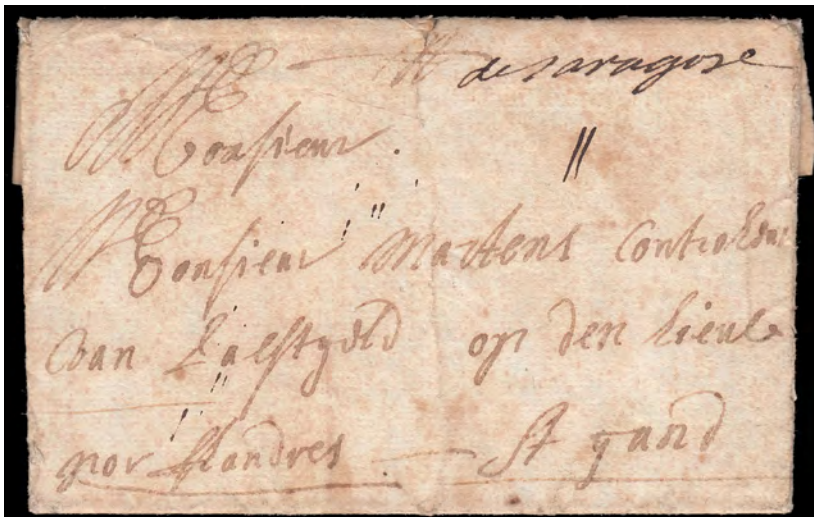 de saragose
Monsieur
Monsieur Martens Controleur
van op den Lieve
por flandres gand